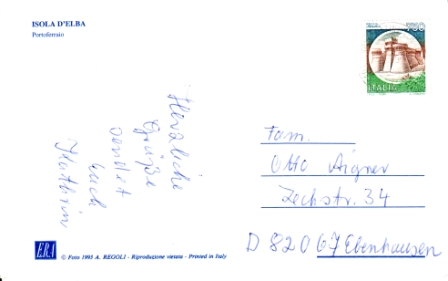 ISOLA D'ELBA
Portoferraio
750
ITALIA
Herzliche
Grüße
sendet
Euch
Kathrin
Fam.
Otto Aigner
Zechstr. 34
D 82067 Ebenhausen
ERA
© Foto 1995 A. REGOLI - Riproduzione vietata - Printed in Italy